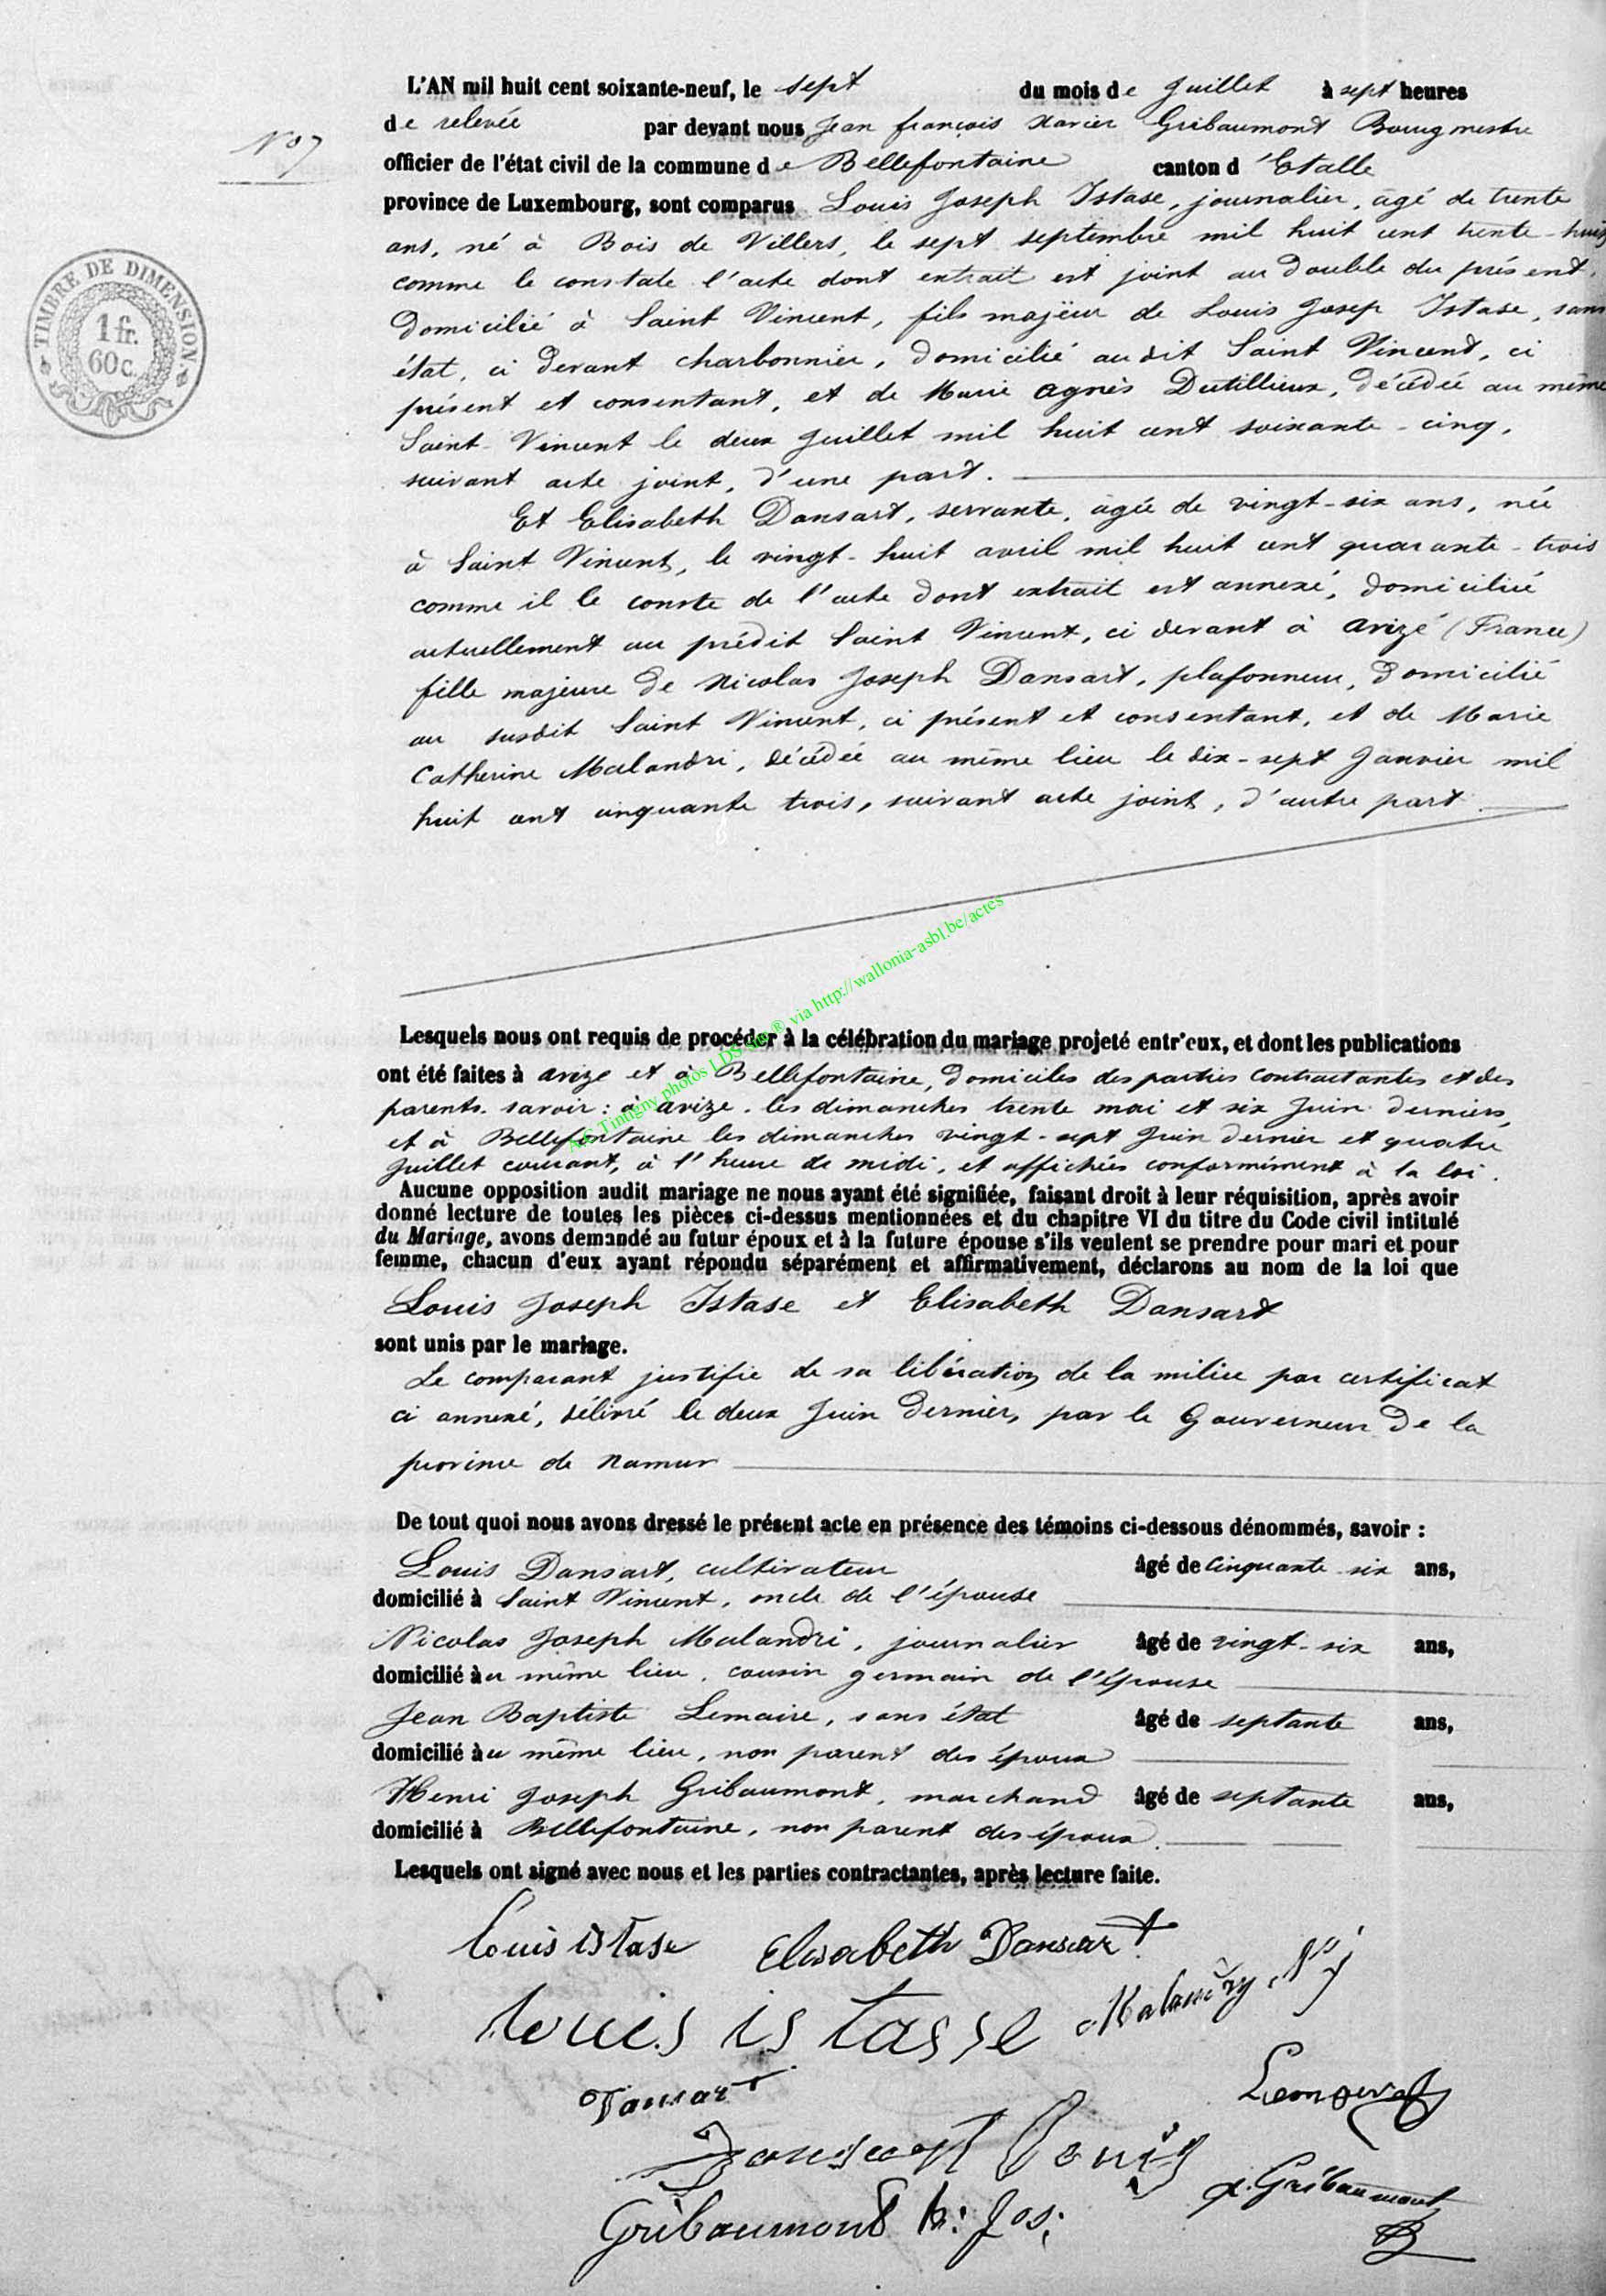 L'AN mil huit cent soixante-neuf, le sept du mois de Juillet à sept heures
de relevée par devant nous Jean françois Xavier Gribaumont Bourgmestre
N° 7
officier de l'état civil de la commune de Bellefontaine canton d'Etalle
province de Luxembourg, sont comparus Louis Joseph Istase, journalier, agé de trente
ans, né à Bois de Villers, le sept septembre mil huit cent trente-huit
comme le constate l'acte dont extrait est joint au double du présent,
domicilié à Saint Vincent, fils majeur de Louis Josep Istase, sans
état, ci devant charbonnier, domicilié au dit Saint Vincent, ci
présent et consentant, et de Marie Agnès Dutillieux, décédée au même
Saint-Vincent le deux Juillet mil huit cent soixante-cinq,
suivant acte joint, d'une part.
Et Elisabeth Dansart, servante, agée de vingt-six ans, née
à Saint Vincent, le vingt-huit avril mil huit cent quarante-trois
comme il le conste de l'acte dont extrait est annexé, domiciliée
actuellement au prédit Saint Vincent, ci devant à Avizé (France)
fille majeure de Nicolas Joseph Dansart, plafonneur, domicilié
au susdit Saint Vincent, ci présent et consentant, et de Marie
Catherine Malandri, décédée au même lieu le dix-sept Janvier mil
huit cent cinquante trois, suivant acte joint, d'autre part
TIMBRE DE DIMENSION
1 fr.
60 c.
A.C Tintigny photos LDS sur ® via http://wallonia-asbl.be/actes
Lesquels nous ont requis de procéder à la célébration du mariage projeté entr'eux, et dont les publications
ont été faites à avize et à Bellefontaine, domiciles des parties contractantes et des
parents. savoir: à avize. les dimanches trente mai et six Juin derniers,
et à Bellefontaine les dimanches vingt-sept Juin dernier et quatre
Juillet courant, à l'heure de midi, et affichées conformément à la loi.
Aucune opposition audit mariage ne nous ayant été signifiée, faisant droit à leur réquisition, après avoir
donné lecture de toutes les pièces ci-dessus mentionnées et du chapitre VI du titre du Code civil intitulé
du Mariage, avons demandé au futur époux et à la future épouse s'ils veulent se prendre pour mari et pour
femme, chacun d'eux ayant répondu séparément et affirmativement, déclarons au nom de la loi que
Louis Joseph Istase et Elisabeth Dansart
sont unis par le mariage.
Le comparant justifie de sa libération de la milice par certificat
ci annexé, délivré le deux Juin dernier, par le Gouverneur de la
province de Namur
De tout quoi nous avons dressé le présent acte en présence des témoins ci-dessous dénommés, savoir :
Louis Dansart, cultivateur âgé de Cinquante six ans,
domicilié à Saint Vincent, oncle de l'épouse
Nicolas Joseph Malandri, journalier âgé de vingt-six ans,
domicilié au même lieu, cousin germain de l'épouse
Jean Baptiste Lemaire, sans état âgé de septante ans,
domicilié au même lieu, non parent des époux
Henri Joseph Gribaumont, marchand âgé de septante ans,
domicilié à Bellefontaine, non parent des époux.
Lesquels ont signé avec nous et les parties contractantes, après lecture faite.
Louis istase Elisabeth Dansart
Louis istasse Malandry N j
Dansart
Dansart Louis
Gribaumont h: Jos: x. Gribaumont